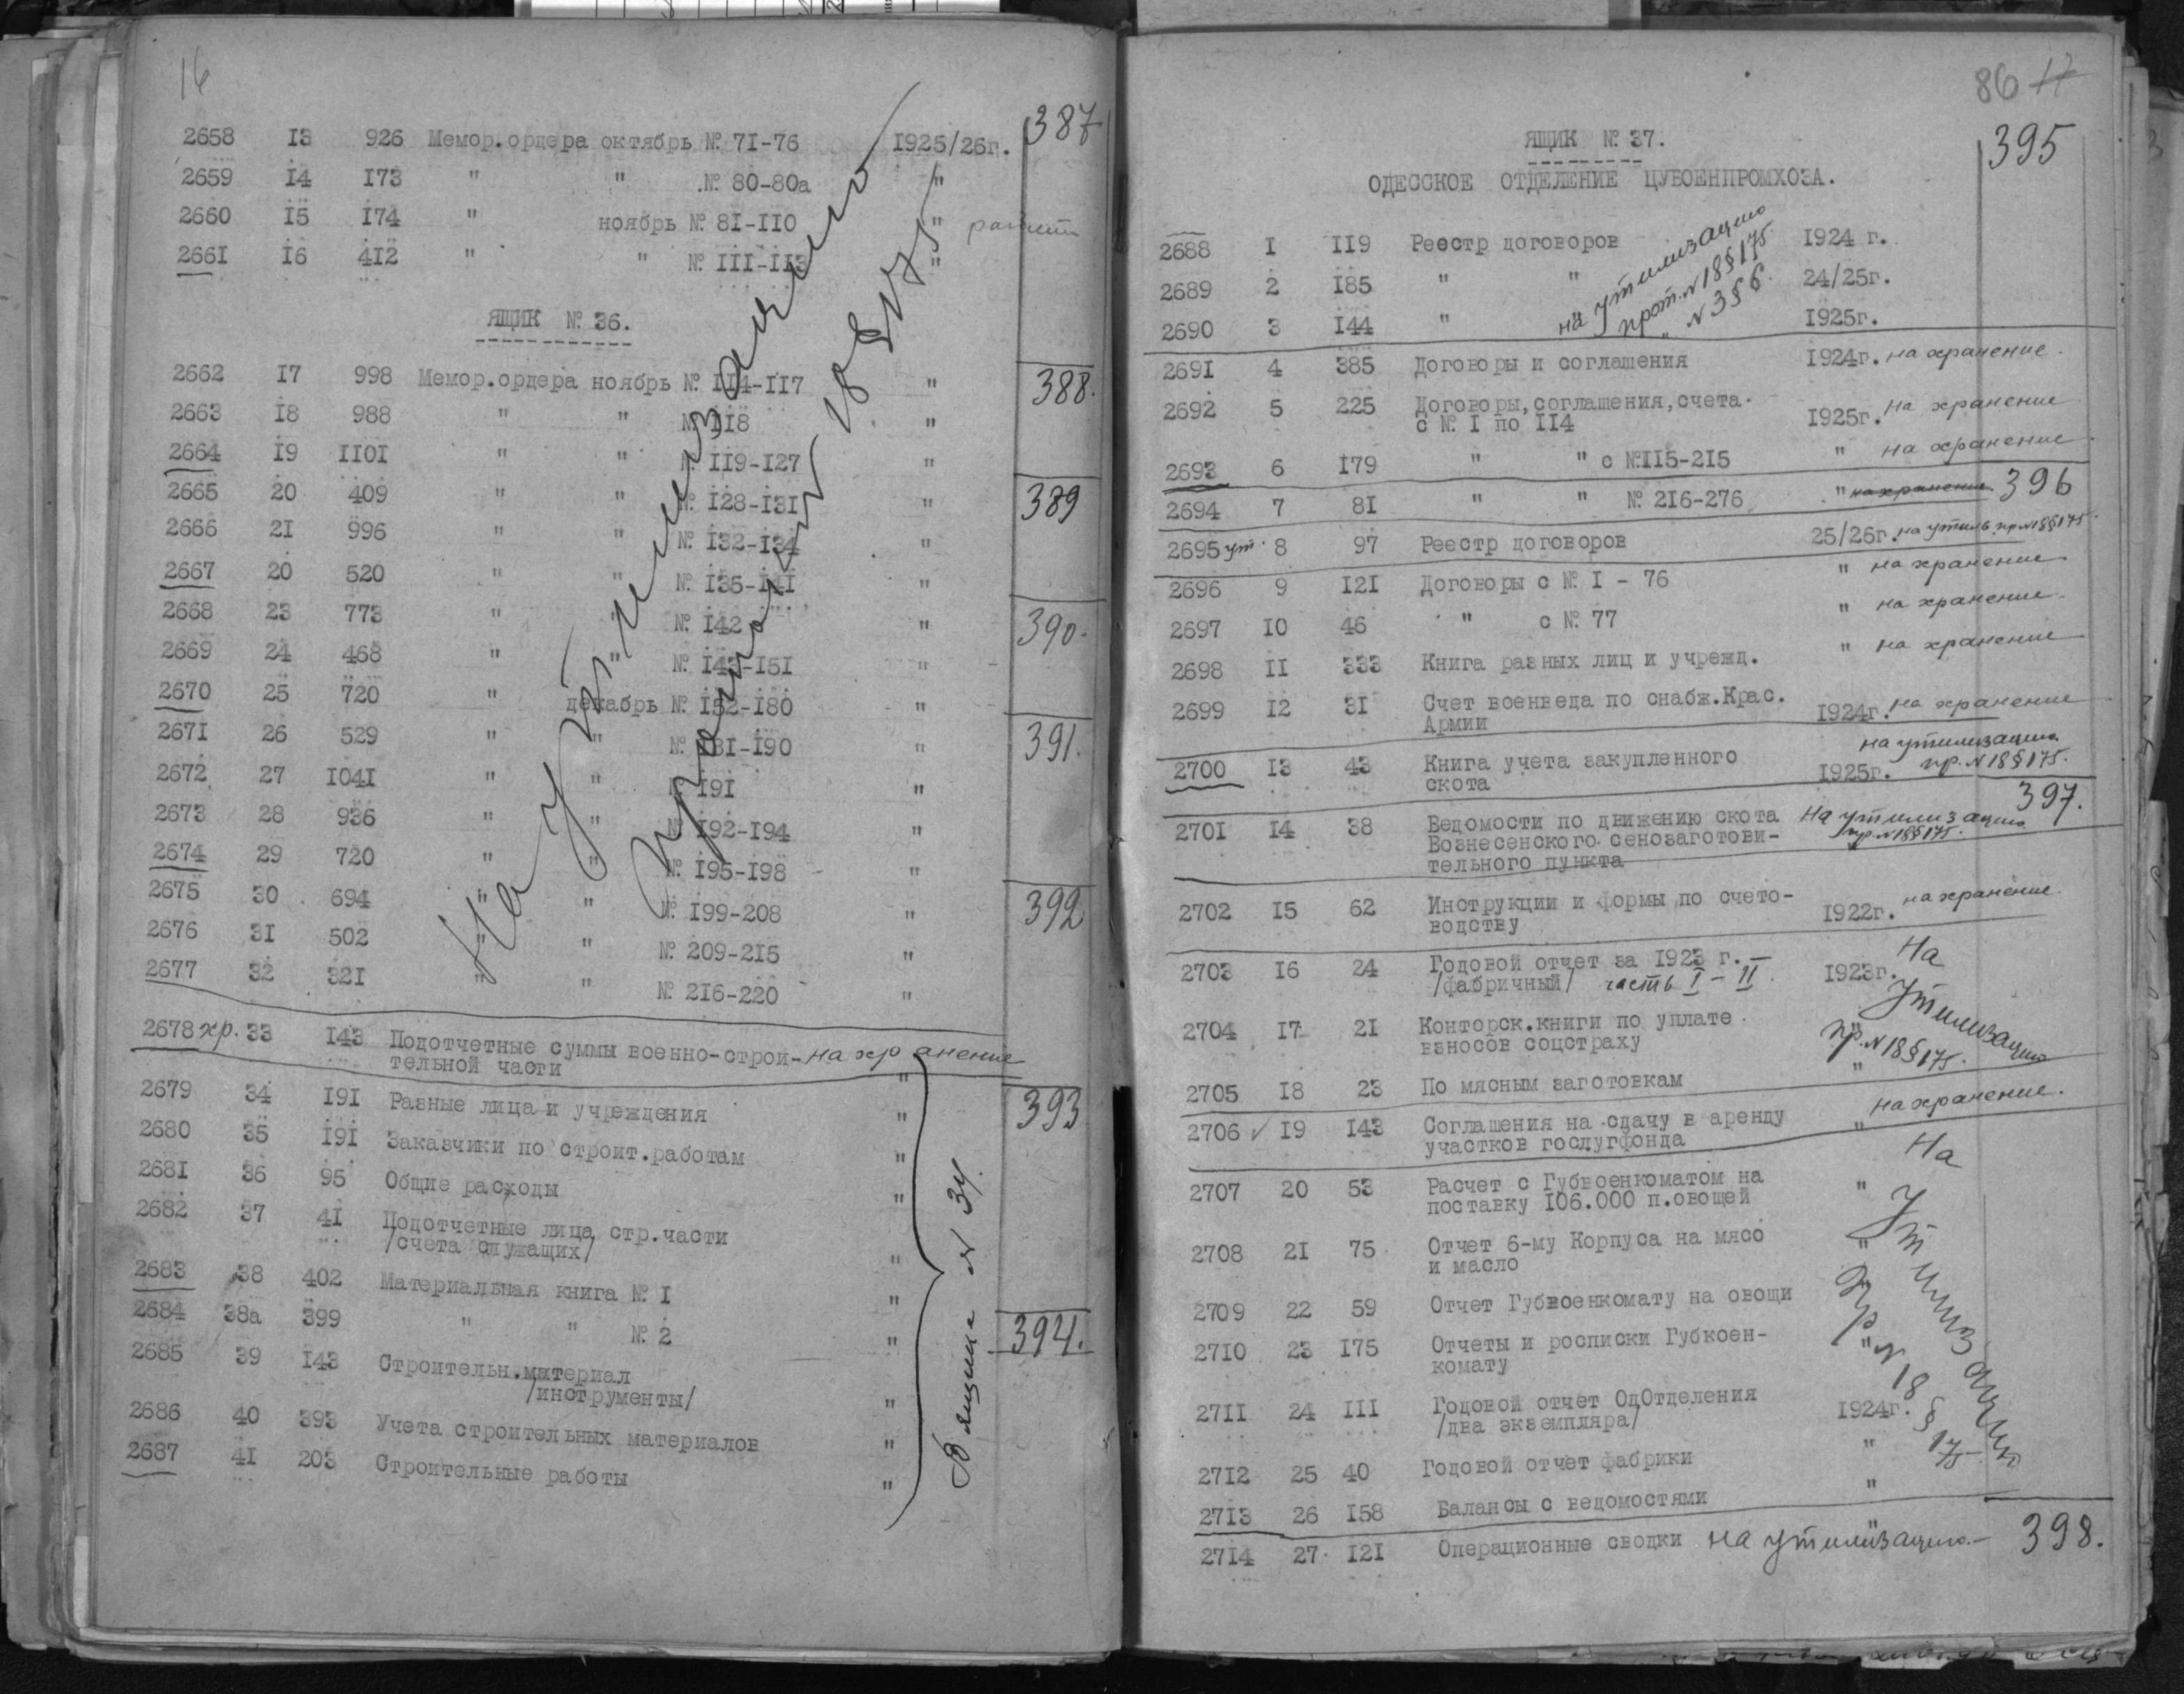 16
387
2658 13 926 Мемор.ордера октябрь № 71-76 1925/26г.
2659 14 173 " " № 80-80а "
2660 15 174 " ноябрь № 81-110 "
2661 16 412 " " № 111-113 "
ЯЩИК № 36.
2662 17 998 Мемор.ордера ноябрь № 114-117 " 388.
2663 18 988 " " № 118 "
2664 19 1101 " " № 119-127 "
2665 20 409 " " № 128-131 " 389
2666 21 996 " " № 132-134 "
2667 20 520 " " № 135-141 "
2668 23 773 " " № 142 " 390.
2669 24 468 " " № 143-151 "
2670 25 720 " декабрь № 152-180 "
2671 26 529 " " № 181-190 " 391.
2672 27 1041 " " № 191 "
2673 28 936 " " № 192-194 "
2674 29 720 " " № 195-198 "
2675 30 694 " " № 199-208 " 392
2676 31 502 " " № 209-215 "
2677 32 321 " " № 216-220 "
На утилизацию
2678 хр. 33 143 Подотчетные суммы военно-строи- на хранение
тельной части "
2679 34 191 Разные лица и учреждения " 393
2680 35 191 Заказчики по строит.работам "
2681 36 95 Общие расходы "
2682 37 41 Подотчетные лица стр.части
/счета служащих/ "
2683 38 402 Материальная книга № 1 "
2684 38а 399 " " № 2 " 394.
2685 39 143 Строительн.материал
/инструменты/ "
2686 40 393 Учета строительных материалов "
2687 41 203 Строительные работы "
В ящике № 34.
86 17
395
ЯЩИК № 37.
ОДЕССКОЕ ОТДЕЛЕНИЕ ЦУВОЕНПРОМХОЗА.
2688 1 119 Реестр договоров 1924 г.
2689 2 185 " " 24/25г.
2690 3 144 " " 1925г.
на утилизацию
прот. № 18 § 175.
" № 3 § 6.
2691 4 385 Договоры и соглашения 1924г. на хранение.
2692 5 225 Договоры,соглашения,счета.
с № 1 по 114 1925г. на хранение
2693 6 179 " " с №115-215 " на хранение.
2694 7 81 " " № 216-276 " на хранение 396
2695 ут. 8 97 Реестр договоров 25/26г. на утиль пр.№18§175.
2696 9 121 Договоры с № 1 - 76 " на хранение
2697 10 46 " с № 77 " на хранение.
2698 11 333 Книга разных лиц и учрежд. " на хранение
2699 12 31 Счет военведа по снабж.Крас.
Армии 1924г. на хранение
2700 13 43 Книга учета закупленного
скота 1925г. на утилизацию
пр. № 18 § 175.
397.
2701 14 38 Ведомости по движению скота На утилизацию
Вознесенского сенозаготови- пр.№18§175.
тельного пункта
2702 15 62 Инструкции и формы по счето-
водству 1922г. на хранение.
2703 16 24 Годовой отчет за 1923 г.
/фабричный/ часть I - II. 1923г.
2704 17 21 Конторск.книги по уплате
взносов соцстраху "
2705 18 23 По мясным заготовкам "
На утилизацию
пр. № 18 § 175.
2706 ✓ 19 143 Соглашения на сдачу в аренду
участков гослугфонда " на хранение.
2707 20 53 Расчет с Губвоенкоматом на
поставку 106.000 п.овощей "
2708 21 75 Отчет 6-му Корпуса на мясо
и масло "
2709 22 59 Отчет Губвоенкомату на овощи "
2710 23 175 Отчеты и росписки Губкоен-
комату "
2711 24 111 Годовой отчет ОдОтделения
/два экземпляра/ 1924г.
2712 25 40 Годовой отчет фабрики "
2713 26 158 Балансы с ведомостями "
На утилизацию
Пр. № 18 § 175.
2714 27 121 Операционные сводки на утилизацию 398.